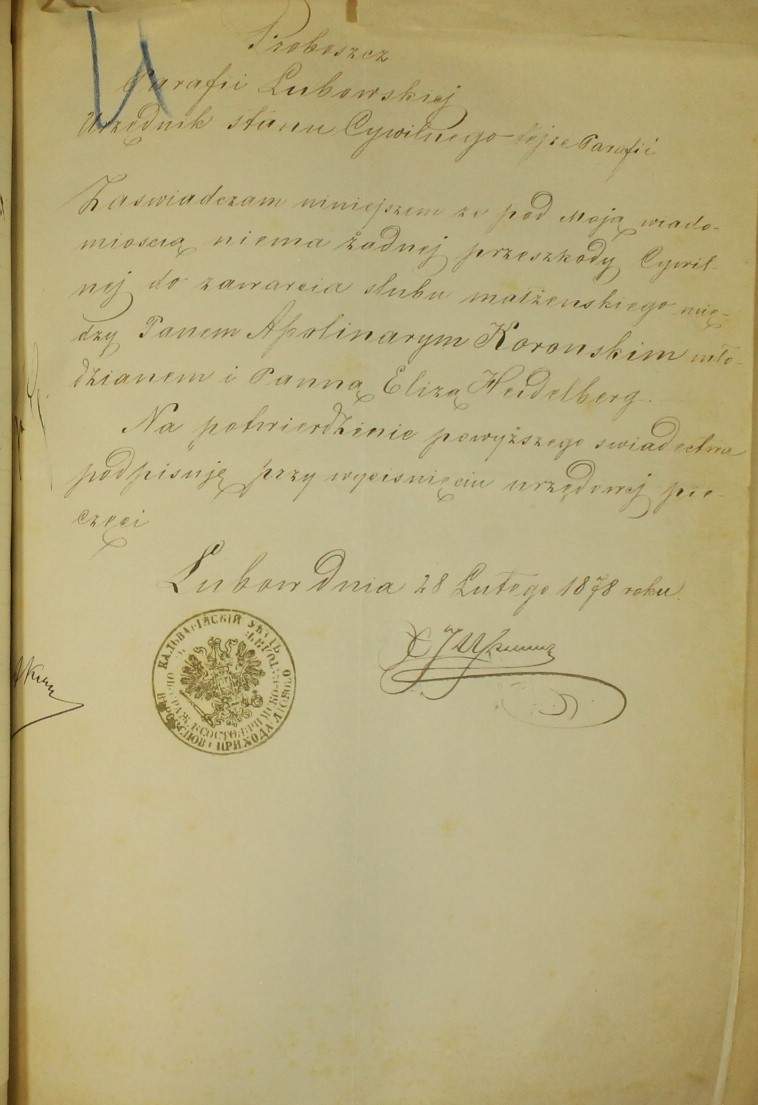 Proboszcz
Parafii Lubowskiej
Urzędnik stanu Cywilnego tejze Parafii
Zaswiadczam niniejszem ze pod Moją wiado-
mioscią niema żadnej przeszkody Cywil-
nej do zawarcia slubu małżenskiego mię-
dzy Panem Apolinarym Koronskim mło-
dzianem i Panną Elizą Heidelberg.
Na potwierdzenie powyższego swiadectwa
podpisuję przy wycisnięciu urzędowej pie-
częci
Lubow dnia 28 Lutego 1878 roku.
КАЛЬВАРІЙСКІЙ УѢЗДЪ
ПРИХОДА ЛЮБОВО